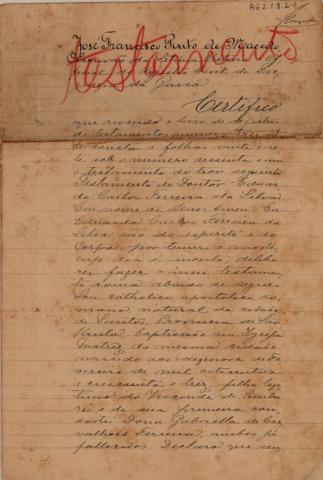 AG2.1.8.2-1
testamento
José Francisco Pinto de Macedo,
da Gavea
Certifico
que revendo o livro de registro
de testamentos numero
consta a folhas vinte e
sob o numero sessenta e um
o testamento do teor seguinte
Testamento do Doutor Eduar
do Carlos Ferreira da Silva
Em nome de Deus Amen. Eu
Ferreira da
Silva são do espirito e do
Corpo, por temer a morte,
cujo dia é incerto, delibe
rei fazer o meu testamen
to como abaixo se segue.
Sou catholico, apostolico, ro
mano, natural da cidade
de Santos, Provincia de São
Paulo baptisado na Igreja
Matriz da mesma cidade
nascido aos dezenove de Fe
vereiro de mil oitocentos
e cincoenta e tres, filho legi
timo do Visconde de Emba
ré e de sua primeira con
sorte Dona Gabriella de Car
valhaes Ferreira, ambos já
fallecidos. Declaro que